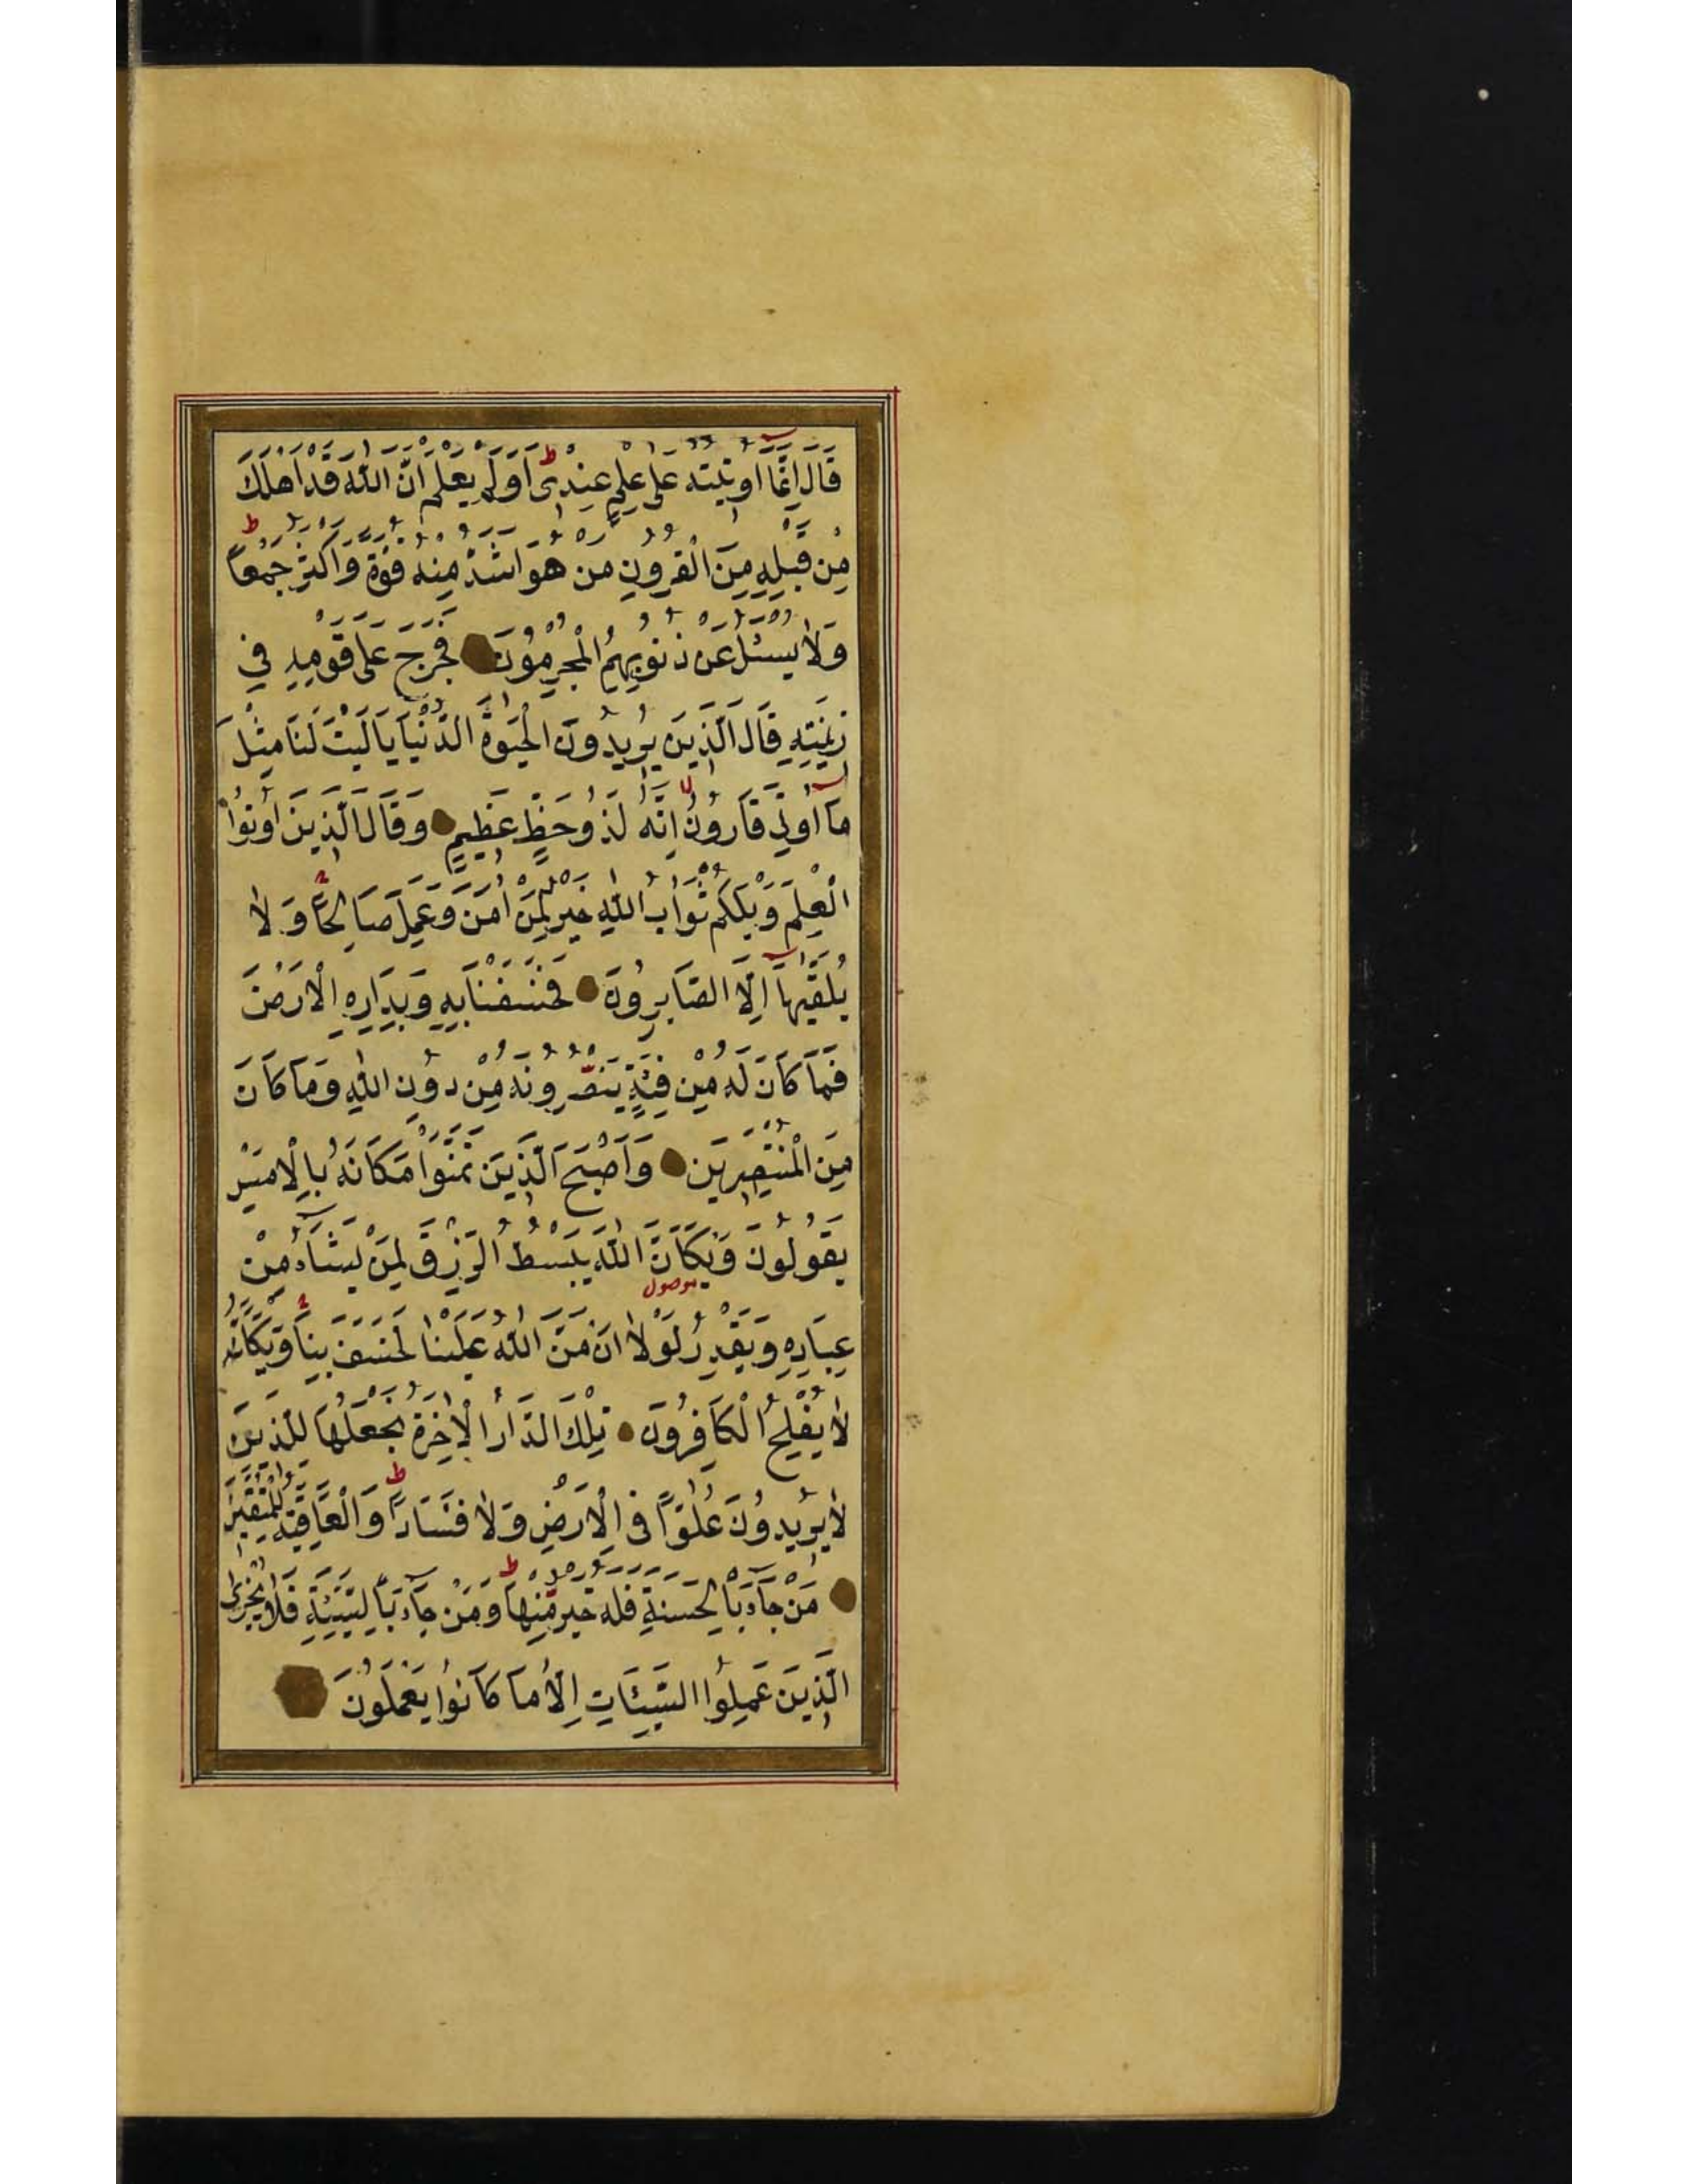 قَالَ اِنَّمَٓا اُو۫تٖيتُهُ عَلٰى عِلْمٍ عِنْدٖى ط اَوَلَمْ يَعْلَمْ اَنَّ اللّٰهَ قَدْ اَهْلَكَ
مِنْ قَبْلِهٖ مِنَ الْقُرُونِ مَنْ هُوَ اَشَدُّ مِنْهُ قُوَّةً وَاَكْثَرُ جَمْعًا ط
وَلَا يُسْئَلُ عَنْ ذُنُوبِهِمُ الْمُجْرِمُونَ فَخَرَجَ عَلٰى قَوْمِهٖ فٖي
زٖينَتِهٖ قَالَ الَّذٖينَ يُرٖيدُونَ الْحَيٰوةَ الدُّنْيَا يَا لَيْتَ لَنَا مِثْلَ
مَٓا اُو۫تِيَ قَارُونُ لا اِنَّهُ لَذُو حَظٍّ عَظٖيمٍ وَقَالَ الَّذٖينَ اُو۫تُوا
الْعِلْمَ وَيْلَكُمْ ثَوَابُ اللّٰهِ خَيْرٌ لِمَنْ اٰمَنَ وَعَمِلَ صَالِحًا ج وَلَا
يُلَقّٰيهَٓا اِلَّا الصَّابِرُونَ فَخَسَفْنَا بِهٖ وَبِدَارِهِ الْاَرْضَ
فَمَا كَانَ لَهُ مِنْ فِئَةٍ يَنْصُرُونَهُ مِنْ دُونِ اللّٰهِ وَمَا كَانَ
مِنَ الْمُنْتَصِرٖينَ وَاَصْبَحَ الَّذٖينَ تَمَنَّوْا مَكَانَهُ بِالْاَمْسِ
يَقُولُونَ وَيْكَاَنَّ اللّٰهَ يَبْسُطُ الرِّزْقَ لِمَنْ يَشَٓاءُ مِنْ
موصول
عِبَادِهٖ وَيَقْدِرُ لَوْلَا اَنْ مَنَّ اللّٰهُ عَلَيْنَا لَخَسَفَ بِنَا ج وَيْكَاَنَّهُ
لَا يُفْلِحُ الْكَافِرُونَ تِلْكَ الدَّارُ الْاٰخِرَةُ نَجْعَلُهَا لِلَّذٖينَ
لَا يُرٖيدُونَ عُلُوًّا فِي الْاَرْضِ وَلَا فَسَادًا ط وَالْعَاقِبَةُ لِلْمُتَّقٖينَ
مَنْ جَٓاءَ بِالْحَسَنَةِ فَلَهُ خَيْرٌ مِنْهَا ط وَمَنْ جَٓاءَ بِالسَّيِّئَةِ فَلَا يُجْزَى
الَّذٖينَ عَمِلُوا السَّيِّئَاتِ اِلَّا مَا كَانُوا يَعْمَلُونَ